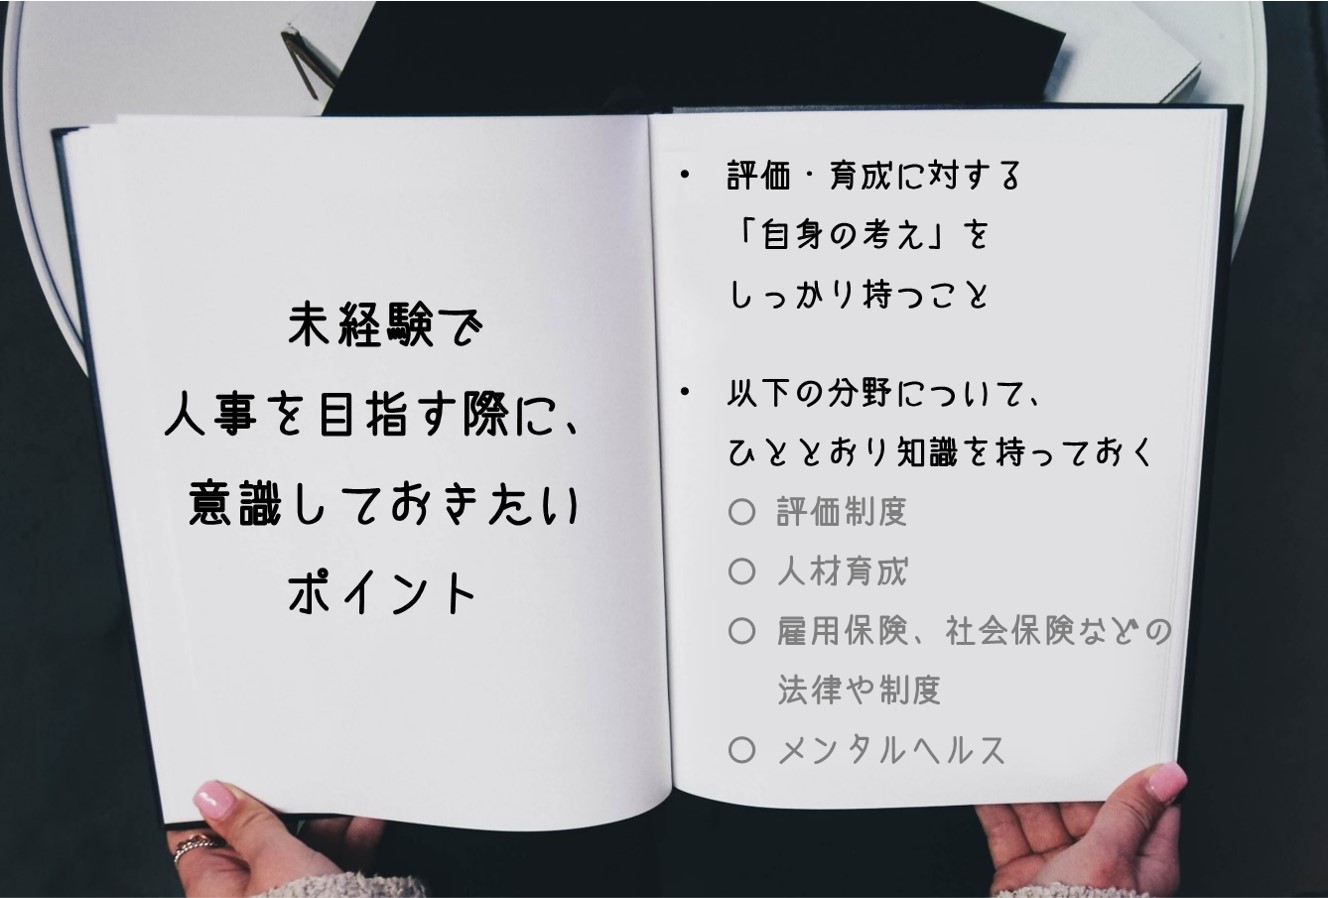 未経験で
人事を目指す際に、
意識しておきたい
ポイント
• 評価・育成に対する
「自身の考え」を
しっかり持つこと
• 以下の分野について、
ひととおり知識を持っておく
○ 評価制度
○ 人材育成
○ 雇用保険、社会保険などの
法律や制度
○ メンタルヘルス